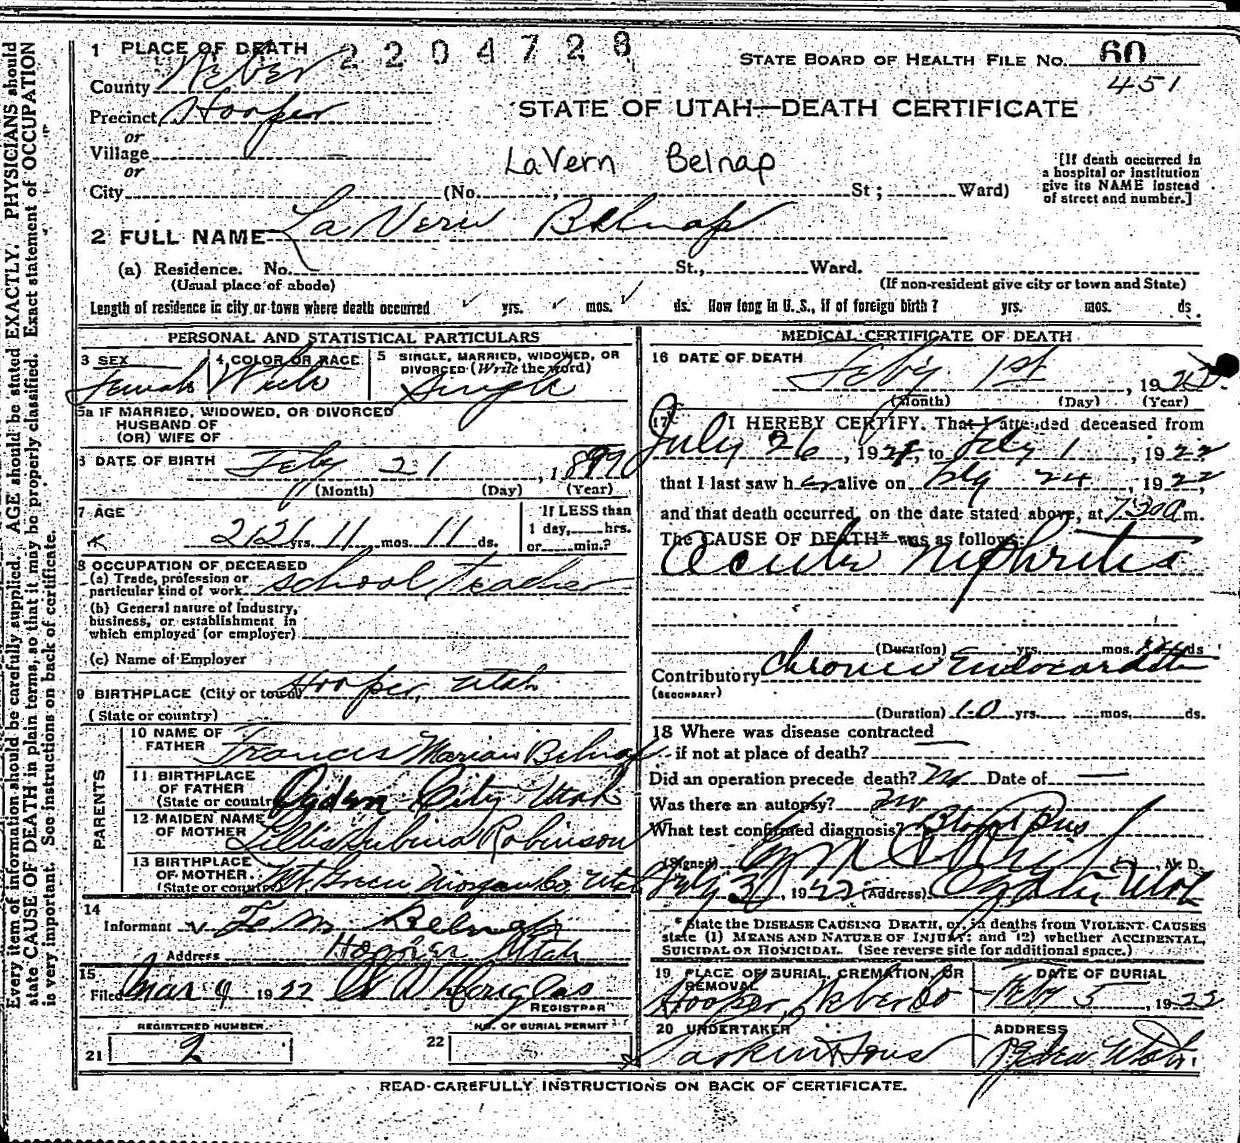 Every item of information should be carefully supplied. AGE should be stated EXACTLY. PHYSICIANS should
state CAUSE OF DEATH in plain terms, so that it may be properly classified. Exact statement of OCCUPATION
is very important. See instructions on back of certificate.
1 PLACE OF DEATH 2204728
STATE BOARD OF HEALTH FILE No. 60
451
County Weber
Precinct Hooper
STATE OF UTAH—DEATH CERTIFICATE
or
Village
or
LaVern Belnap
[If death occurred in
a hospital or institution
give its NAME instead
of street and number.]
City (No. , St ; Ward)
2 FULL NAME La Vern Belnap
(a) Residence. No. St., Ward.
(Usual place of abode) (If non-resident give city or town and State)
Length of residence in city or town where death occurred yrs. mos. ds. How long in U.S., if of foreign birth? yrs. mos. ds.
PERSONAL AND STATISTICAL PARTICULARS
3 SEX 4 COLOR OR RACE 5 SINGLE, MARRIED, WIDOWED, OR
DIVORCED (Write the word)
Female White Single
5a IF MARRIED, WIDOWED, OR DIVORCED
HUSBAND OF
(OR) WIFE OF
6 DATE OF BIRTH Feby 21, 1899
(Month) (Day) (Year)
7 AGE If LESS than
1 day, hrs.
22 yrs. 11 mos. 11 ds. or min.?
8 OCCUPATION OF DECEASED
(a) Trade, profession or
particular kind of work school teacher
(b) General nature of Industry,
business, or establishment in
which employed (or employer)
(c) Name of Employer
9 BIRTHPLACE (City or town) Hooper, Utah
(State or country)
PARENTS
10 NAME OF
FATHER Francis Marian Belnap
11 BIRTHPLACE
OF FATHER
(State or country) Ogden City Utah
12 MAIDEN NAME
OF MOTHER Lillis Lubina Robinson
13 BIRTHPLACE
OF MOTHER
(State or country) Mt. Green Morgan Co. Utah
14
Informant Belnap
Address Hooper Utah
15
Filed Mar 9 1922 Douglas
REGISTRAR
REGISTERED NUMBER NO. OF BURIAL PERMIT
21 2 22
MEDICAL CERTIFICATE OF DEATH
16 DATE OF DEATH
Feby 1st, 1922
(Month) (Day) (Year)
17 I HEREBY CERTIFY, That I attended deceased from
July 26, 1921, to Feby 1, 1922
that I last saw her alive on 24, 1922,
and that death occurred, on the date stated above, at 7:30a m.
The CAUSE OF DEATH* was as follows:
Acute Nephritis
(Duration) yrs. mos. ds
Contributory Chronic Endocarditis
(SECONDARY)
(Duration) 10 yrs. mos. ds.
18 Where was disease contracted
if not at place of death?
Did an operation precede death? no Date of
Was there an autopsy? no
What test confirmed diagnosis?
(Signed) M. D.
1922 (Address) Ogden Utah
* State the DISEASE CAUSING DEATH, or, in deaths from VIOLENT CAUSES
state (1) MEANS AND NATURE OF INJURY; and (2) whether ACCIDENTAL,
SUICIDAL OR HOMICIDAL. (See reverse side for additional space.)
19 PLACE OF BURIAL, CREMATION, OR
REMOVAL DATE OF BURIAL
Hooper, Weber Co Feby 5, 1922
20 UNDERTAKER ADDRESS
Larkin & Sons Ogden Utah.
READ CAREFULLY INSTRUCTIONS ON BACK OF CERTIFICATE.